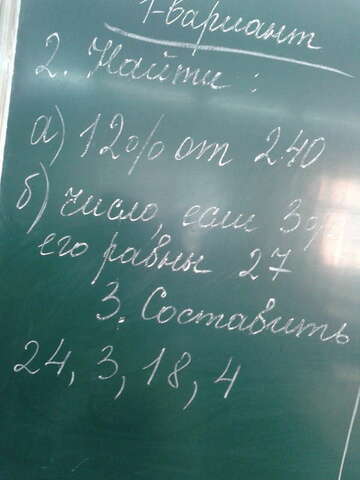 1-вариант
2. Найти:
а) 12% от 240
б) число, если 3%
его равны 27
3. Составить
24, 3, 18, 4